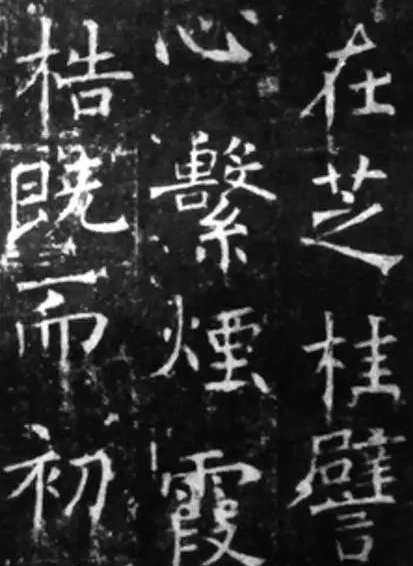 在芝桂譬
心繫煙霞
梏既而初